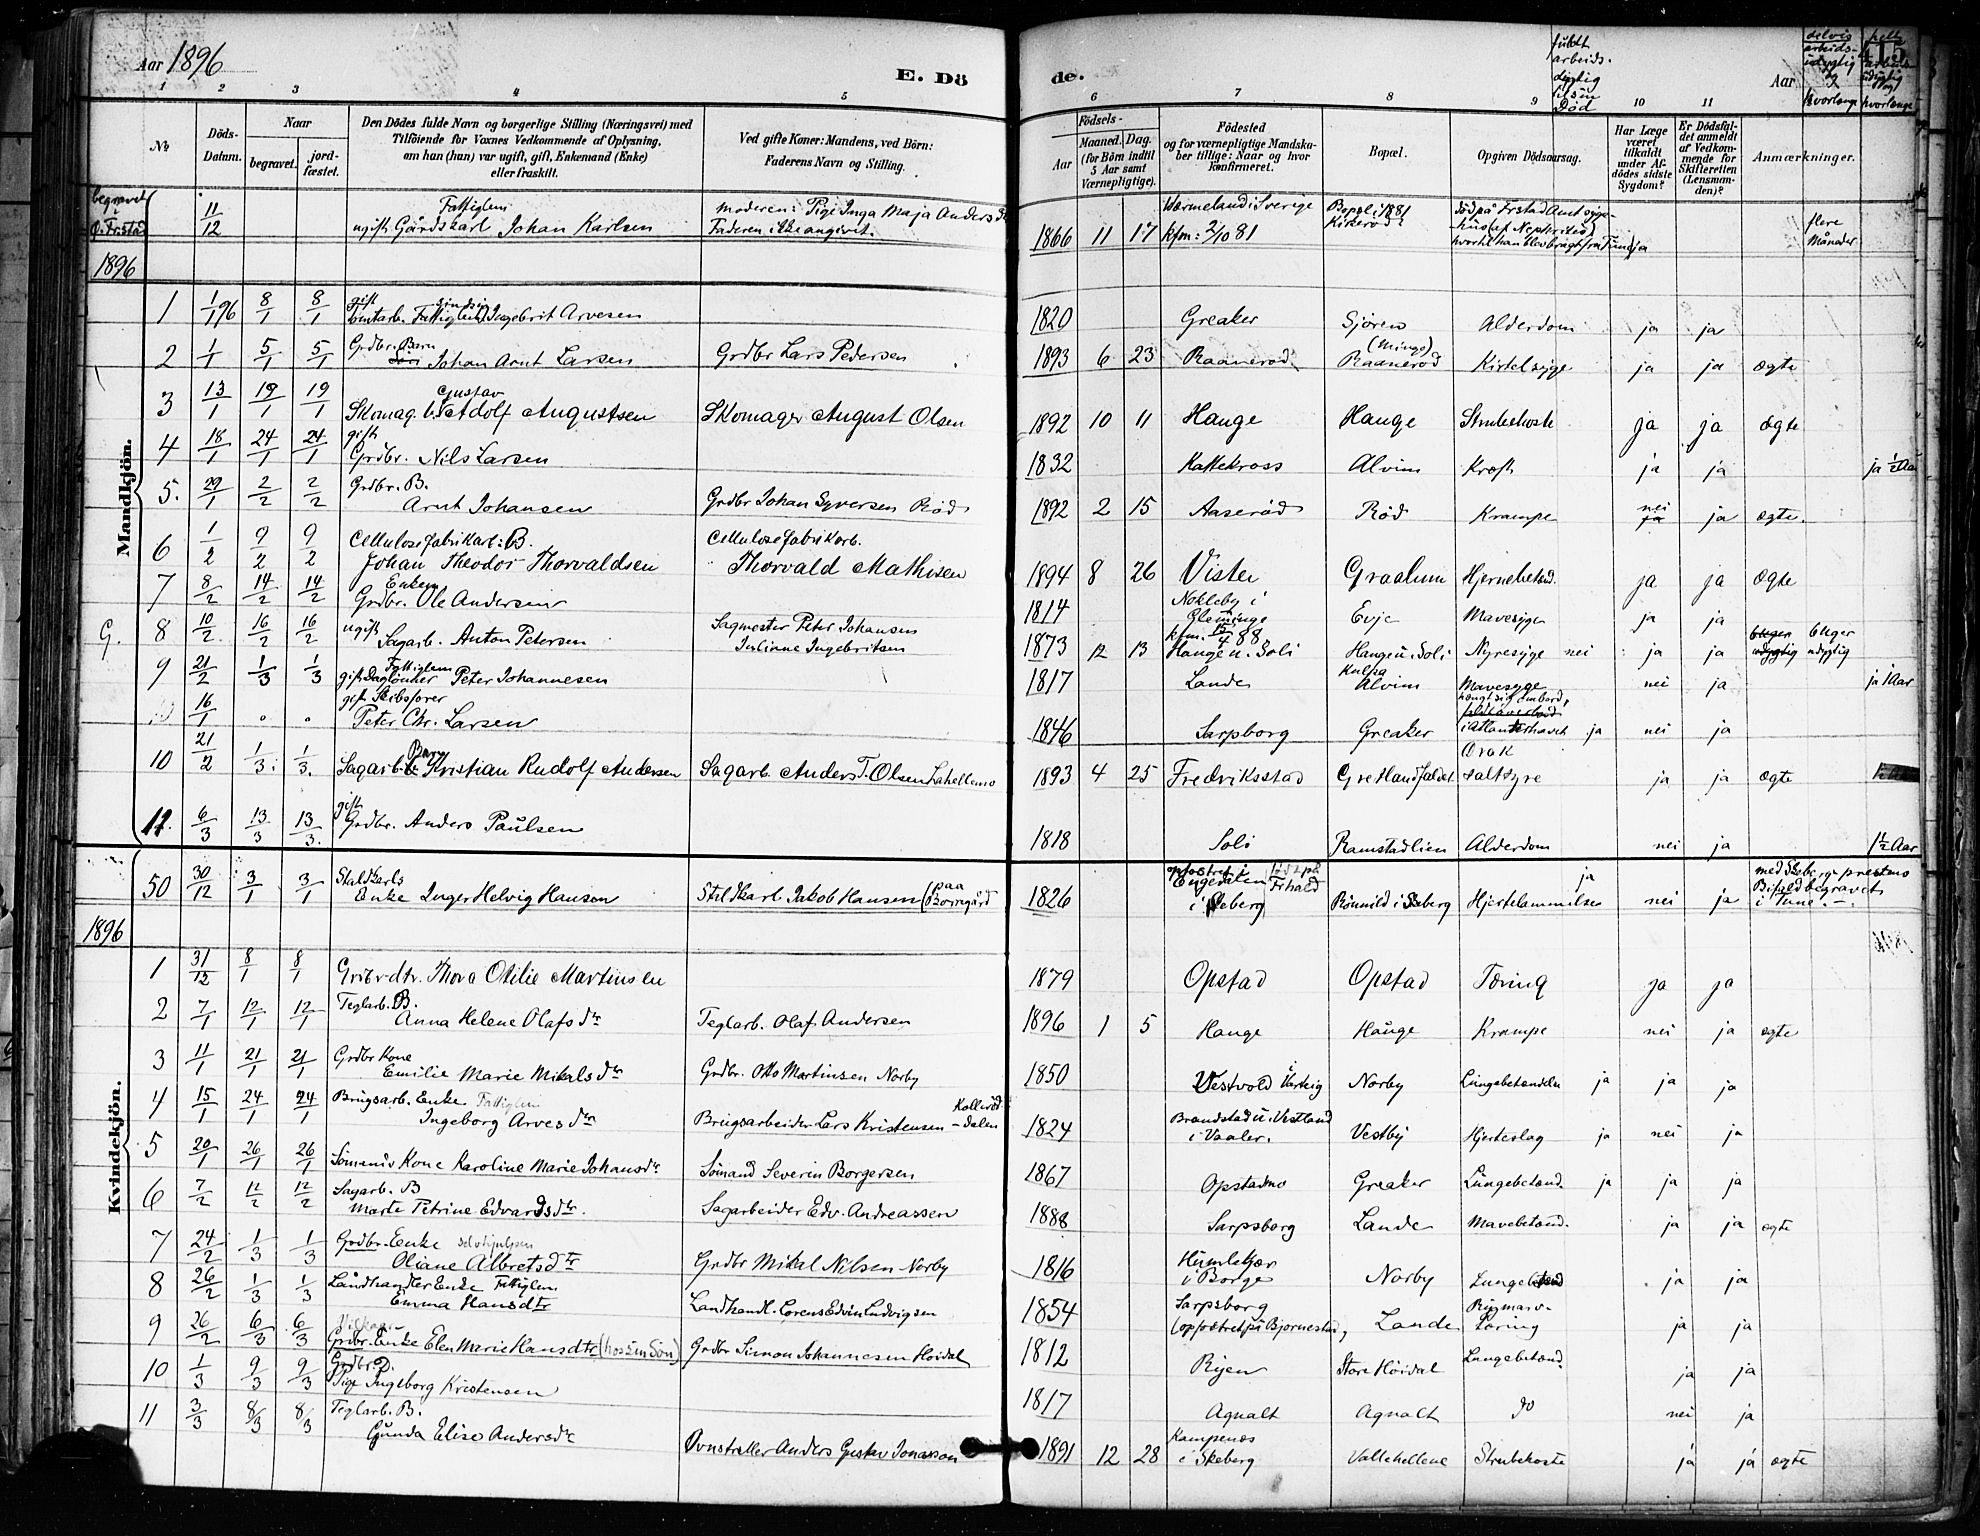 Aar 1896
E. Dö
de.
Aar
115
fuldt arbeids-dygtig til sin Död
delvis arbeids-udygtig og hvorlænge
helt arbeids udygtig og hvorlænge
1 2 3 4 5 6 7 8 9 10 11
No
Döds-Datum.
Naar
begravet.
jord-fæstet.
Den Dödes fulde Navn og borgerlige Stilling (Næringsvei) med
Tilföiende for Voxnes Vedkommende af Oplysning,
om han (hun) var ugift, gift, Enkemand (Enke)
eller fraskilt.
Ved gifte Koner: Mandens, ved Börn:
Faderens Navn og Stilling.
Födsels-
Aar
Maaned. Dag.
(for Börn indtil 5 Aar samt Værnepligtige).
Födested
og for værnepligtige Mandska-
ber tillige: Naar og hvor
konfirmeret.
Bopæl.
Opgiven Dödsaarsag.
Har Læge været tilkaldt under Afdödes sidste Sygdom?
Er Dödsfaldet anmeldt af Vedkommende for Skifteretten (Lensmanden)?
Anmærkninger.
begravet i F.stad 11/12 Fattiglem ugift Gårdskarl Johan Karlsen Moderen: Pige Inga Maja Anders Dr Faderen ikke angivet. 1866 11 17 Wærmeland i Sverige kfm: 2/10 81 Bopel i 1881 Kirkerød? ja flere Måneder
1896
Mandkjön.
1 1/1 96 8/1 8/1 gift Fattiglem Ingebrit Arvesen 1820 Greaker Sjøren Alderdom ja ja
2 1/1 5/1 5/1 Grdbr. Barn Johan Arnt Larsen Grdbr Lars Pedersen 1893 6 23 Raanerød Raanerød (Minge) Kirtelsyge ja ja ægte
3 13/1 19/1 19/1 Skomag. B. Gustav Adolf Augustsen Skomager August Olsen 1892 10 11 Hauge Hauge Strubehoste ja ja ægte
4 18/1 24/1 24/1 gift Grdbr. Nils Larsen 1832 Kattekross Alvim Kræft ja ja ja 1/2 Aar
5. 29/1 2/2 2/2 Grdbr. B. Arnt Johansen Grdbr Johan Syversen Rød 1892 2 15 Aaserød Rød Krampe nei ja ægte.
6 1/2 9/2 9/2 Cellulosefabrikarb: B. Johan Theodor Thorvaldsen Cellulosefabrikarb. Thorvald Mathisen 1894 8 26 Vister Graalum Hjernebetænd. ja ja ægte
7 8/2 14/2 14/2 Enkem Grdbr. Ole Andersen 1814 Nokleby i Glemminge Evje Mavesyge ja ja
G. 8 10/2 16/2 16/2 ugift Sagarb. Anton Petersen Sagmester Peter Johansen Juliane Ingebritsen 1873 12 13 kfm. 15/4 88 Hauge u. Soli Hauge u. Soli Nyresyge nei ja ja 6 Uger udygtig
9 21/2 1/3 1/3 Fattiglem gift Daglönner Peter Johannesen 1817 Lande Kulpa Alvim Mavesyge nei ja ja 1 Aar
16/1 " " gift Skibsfører Peter Chr. Larsen 1846 Sarpborg Greaker i Atlanterhavet ja nei ja
10 21/2 1/3. 1/3. Sagarb. Barn Kristian Rudolf Andersen Sagarb. Anders T. Olsen Lahellemo 1893 4 25 Fredriksstad Gretlandfaldet Drak saltsyre ja ja ægte
11. 6/3 13/3 13/3. gift Grdbr. Anders Paulsen 1818 Soli Ramstadlien Alderdom nei ja 1 1/2 Aar
50 30/12 3/1 3/1 Staldkarls Enke Inger Helvig Hansen Staldkarl Jakob Hansen (paa Borregård 1826 opfostret i Engedalen i Skeberg født på Frhald Rönnild i Skeberg Hjertelammelse ja nei ja med Skebergs prestens Bifald begravet i Tune.
1896
Kvindekjön.
1 31/12 8/1 8/1 Grdbr-dtr. Thora Otilie Martinsen 1879 Opstad Opstad Tæring ja ja
2 7/1 12/1 12/1 Teglarb. B. Anna Helene Olafs Dr Teglarb. Olaf Andersen 1896 1 5 Hauge Hauge Krampe nei ja ægte
3 11/1 21/1 21/1 Grdbr Kone Emilie Marie Mikals dr Grdbr. Otto Martinsen Norby 1850 Vestvold i Varteig Norby Lungebetændelse ja ja ja
4 15/1 24/1 24/1 Brugsarb. Enke Fattiglem Ingeborg Arves dr Brugsarbeider Lars Kristensen – Kollerød-dalen 1824 Brandstad u. Vestland i Vaaler. Vestby Hjerteslag ja nei ja
5 20/1 26/1 26/1 Sömands Kone Karoline Marie Johans dr Sömand Severin Borgersen 1867 Opstadmo Greaker Lungebetænd. ja ja ja
6 7/2 12/2 12/2 Sagarb. B Marte Petrine Edvards dr. Sagarbeider Edv. Andreassen 1888 Sarpsborg Lande Mavebetænd. ja ja ægte
7 24/2 1/3 1/3 Grdbr. Enke selvhjulpen Oliane Albrets dtr Grdbr Mikal Nilsen Norby 1816 Humlekjær i Borge Norby Lungebetænd ja ja
8 26/2 1/3 1/3 Landhandler Enke Fattiglem Emma Hans dtr Landhandl. Lorens Edvin Ludvigsen 1854 Sarpsborg (opfostret på Bjørnestad, Lande Rygmarv-tæring ja ja
9 26/2 6/3 6/3 Grdbr. Enke Elen Marie Hans dtr (hos sin Søn) Grdbr Simon Johannesen Høidal 1812 Ryen Store Høidal Lungebetænd. ja ja
10 1/3 9/3 9/3 Grdbr. D. Pige Ingeborg Kristensen 1817 Agnalt Agnalt do nei ja
11 3/3 8/3 8/3 Teglarb. B. Gunda Elise Anders dr Anders Gustav Jonasson 1891 12 28 Kampenes i Skeberg Vallehellene Strubehoste ja ja ægte